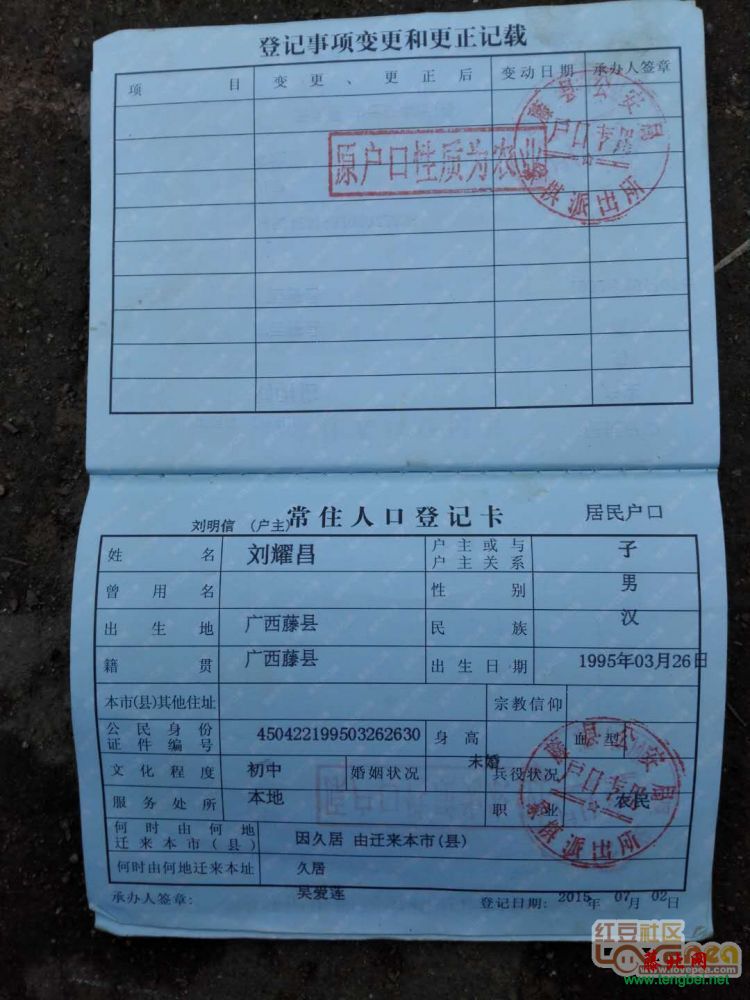 登记事项变更和更正记载
项 目 变 更 、 更 正 后 变动日期 承办人签章
原户口性质为农业
藤县公安局
户口专用
派出所
刘明信 (户主) 常住人口登记卡 居民户口
姓 名 刘耀昌 户主或与户主关系 子
曾 用 名 性 别 男
出 生 地 广西藤县 民 族 汉
籍 贯 广西藤县 出生日期 1995年03月26日
本市(县)其他住址 宗教信仰
公民身份证件编号 450422199503262630 身 高 血 型
文化程度 初中 婚姻状况 未婚 兵役状况
服务处所 本地 职 业 农民
何时由何地迁来本市(县) 因久居 由迁来本市(县)
何时由何地迁来本址 久居
承办人签章: 吴爱连 登记日期: 2015年 07月 02日
藤县公安局
户口专用
派出所
红豆社区
www.lovepea.com
www.tengbei.net